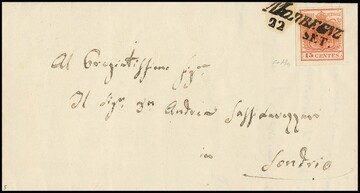 MORBEGNO
22
SET.
15 CENTES
Al Pregiatissimo Sigr.
Il Sigr. Andrea
in
Sondrio